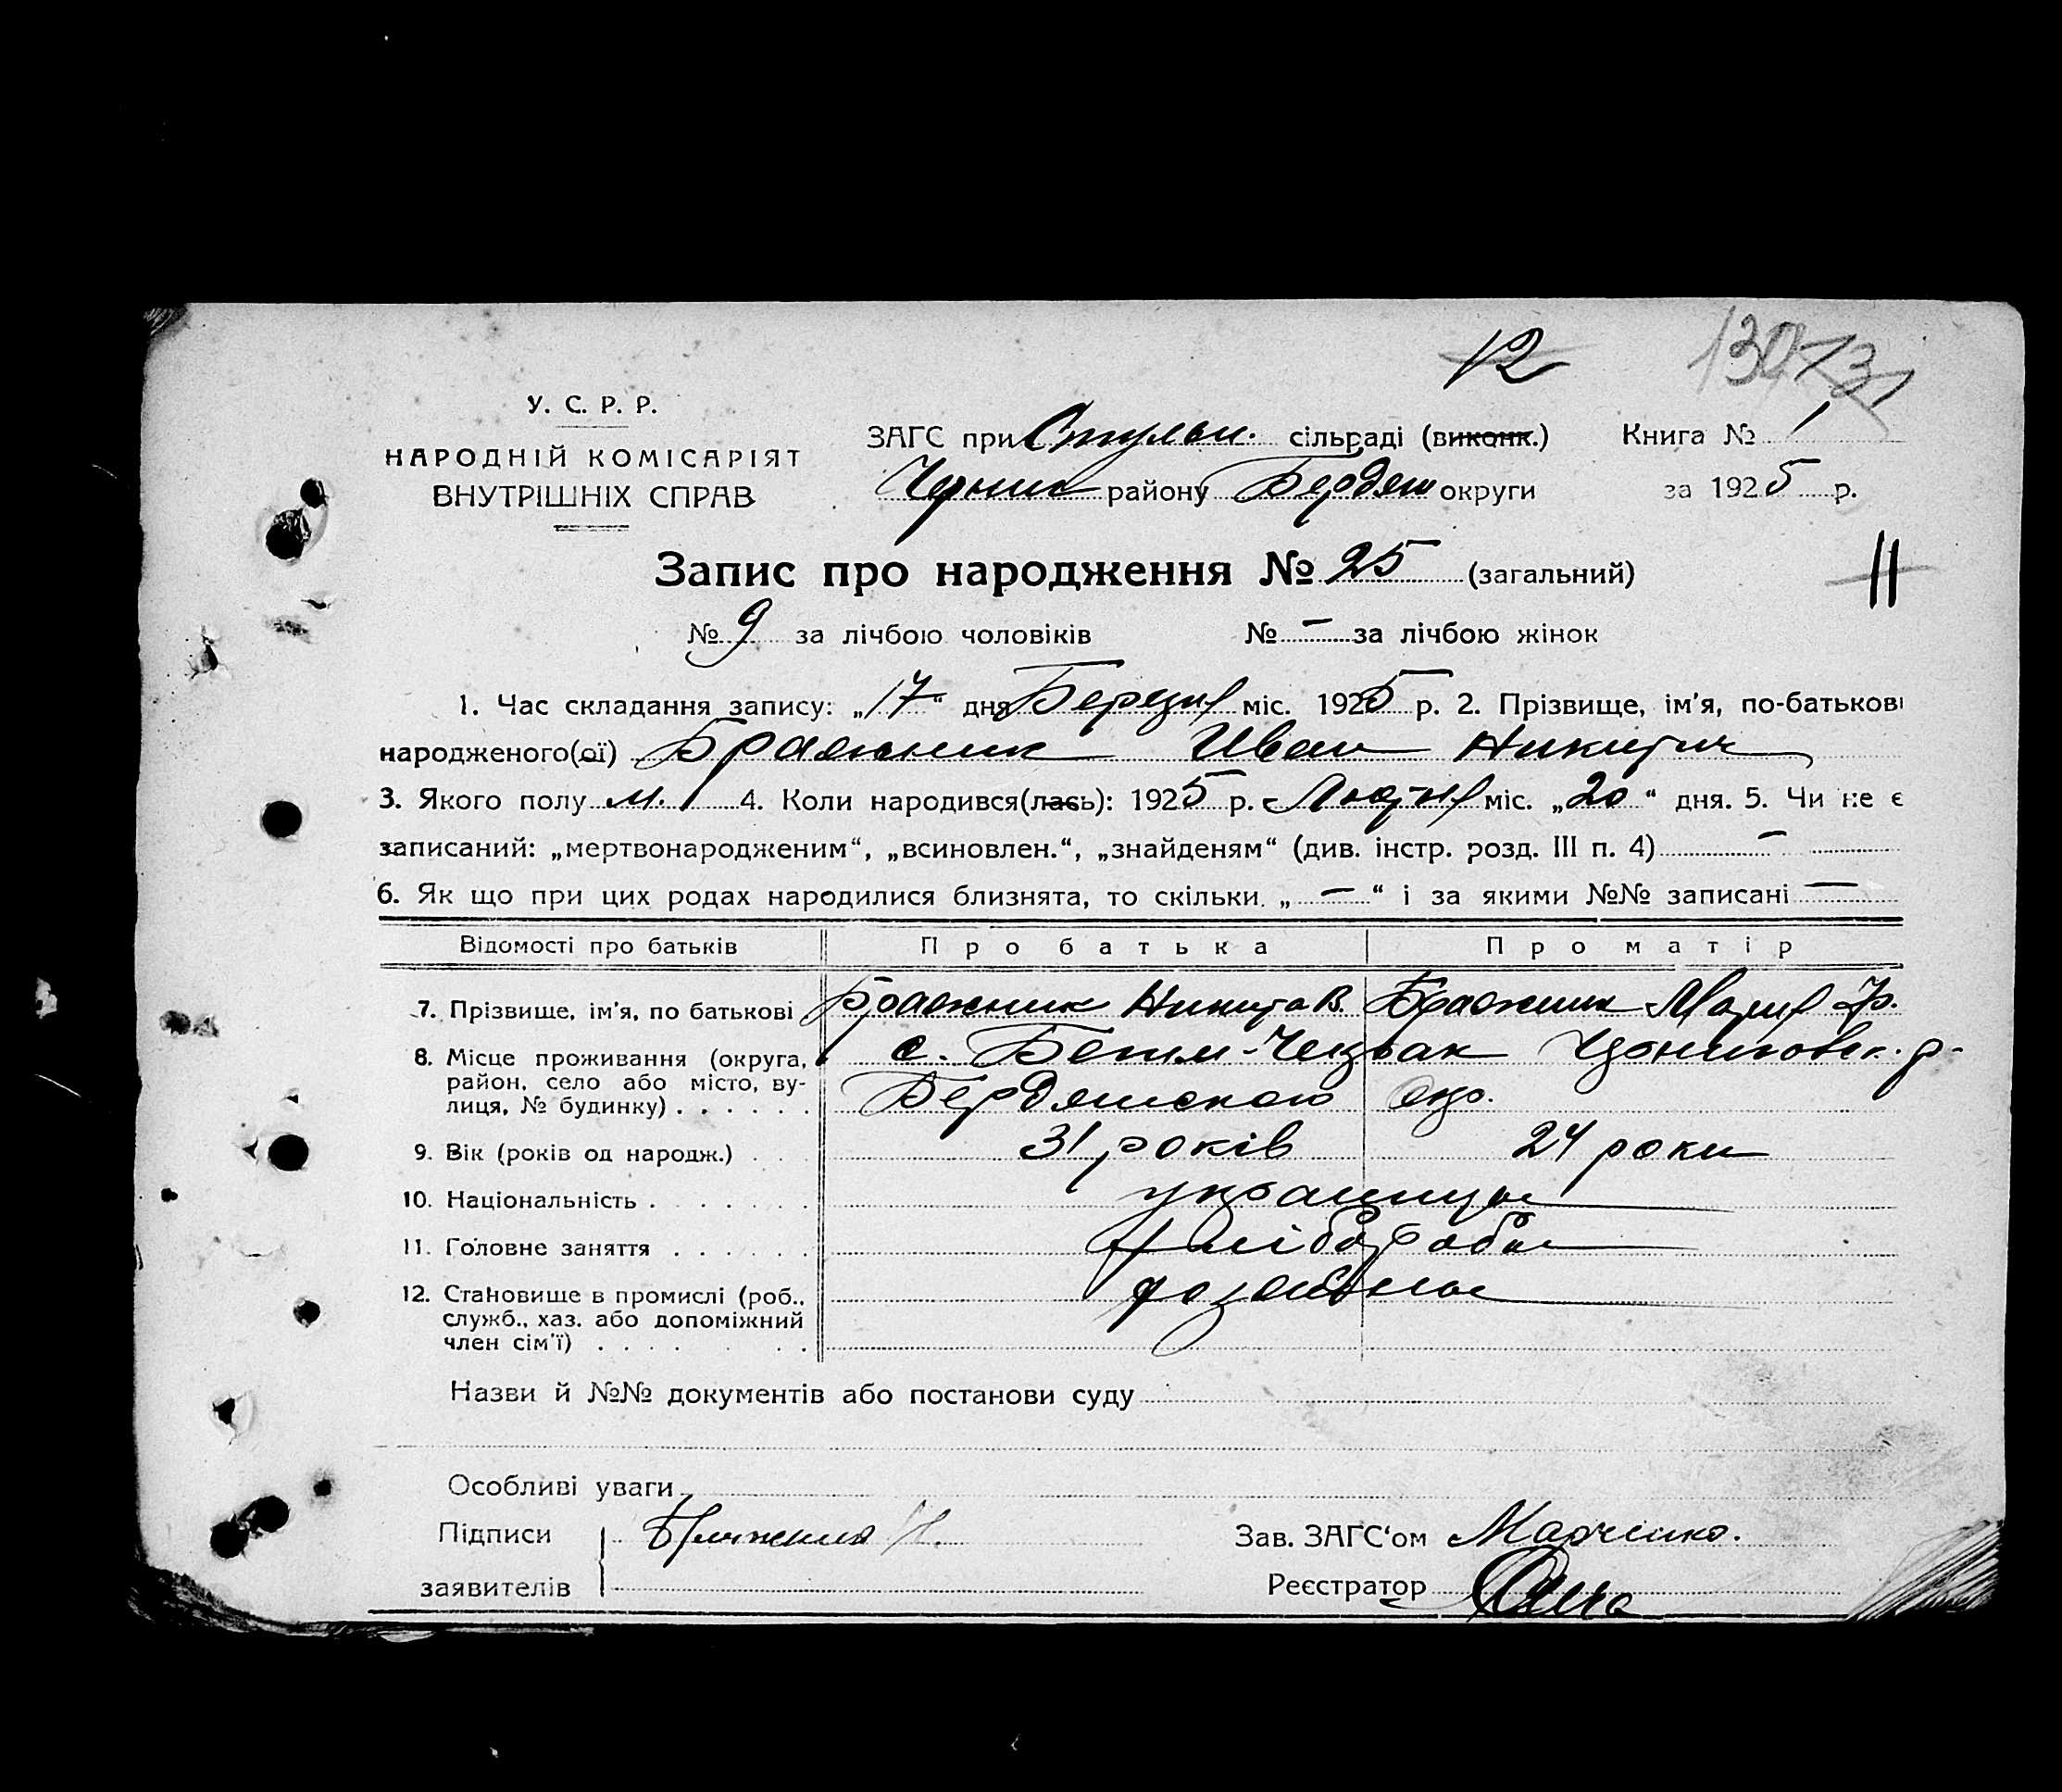 12
130 131
У. С. Р. Р.
НАРОДНІЙ КОМІСАРІЯТ
ВНУТРІШНІХ СПРАВ
ЗАГС при сільраді (виконк.) Книга № 1
району Бердян округи за 1925 р.
Запис про народження № 25 (загальний)
11
№ 9 за лічбою чоловіків № — за лічбою жінок
1. Час складання запису: „17“ дня Березня міс. 1925 р. 2. Прізвище, ім'я, по-батькові
народженого(ої) Бражник Иван Никитич
3. Якого полу м. 4. Коли народився(лась): 1925 р. Лютня міс. „20“ дня. 5. Чи не є
записаний: „мертвонародженим“, „всиновлен.“, „знайденям“ (див. інстр. розд. III п. 4) —
6. Як що при цих родах народилися близнята, то скільки „—“ і за якими №№ записані —
Відомості про батьків Про батька Про матір
7. Прізвище, ім'я, по батькові Бражник Никита В. Бражник Мария
8. Місце проживання (округа, район, село або місто, вулиця, № будинку) с. Бегим-Чекрак
Бердянською окр.
9. Вік (років од народж.) 31 років 24 роки
10. Національність украинцы
11. Головне заняття хліборобы
12. Становище в промислі (роб., служб., хаз. або допоміжний член сім'ї)
Назви й №№ документів або постанови суду
Особливі уваги
Підписи заявителів Бражник Н. Зав. ЗАГС'ом Марченко.
Реєстратор